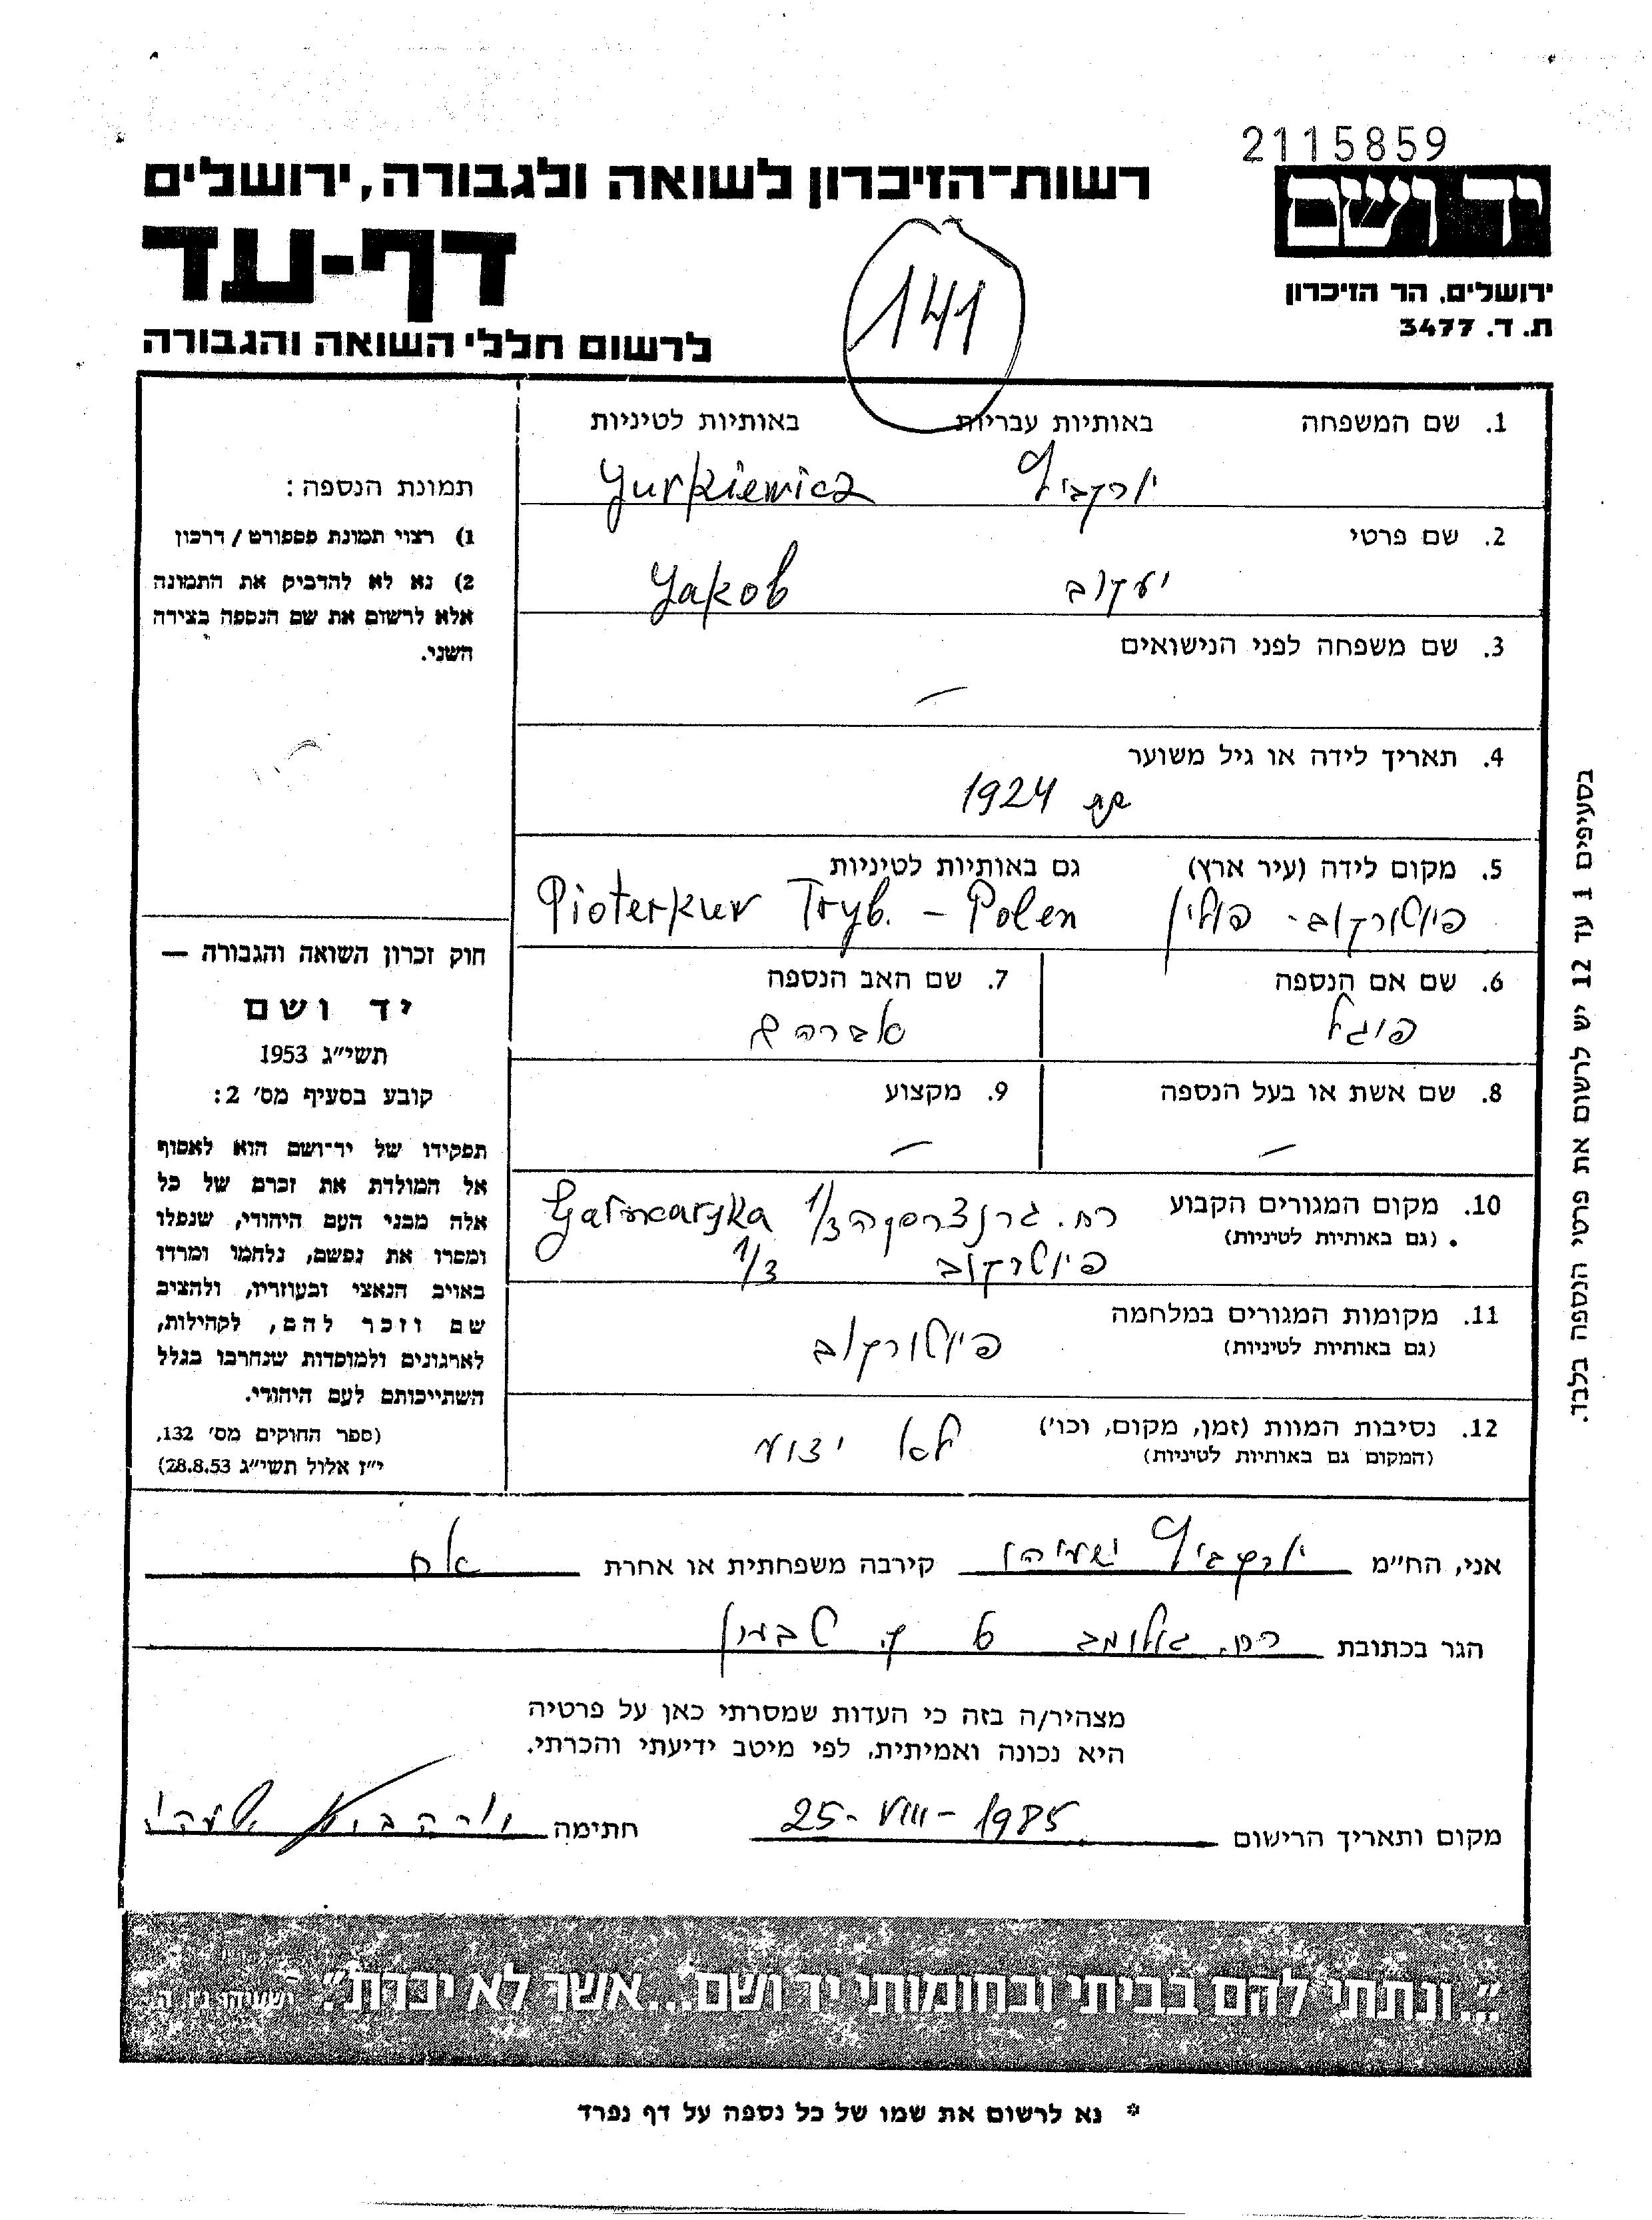 2115859
יד ושם
ירושלים, הר הזיכרון
ת. ד. 3477
רשות-הזיכרון לשואה ולגבורה, ירושלים
דף-עד
לרשום חללי השואה והגבורה
141
1. שם המשפחה באותיות עבריות באותיות לטיניות
יורקביץ Yurkiewicz
2. שם פרטי
יעקוב Yakob
3. שם משפחה לפני הנישואים
—
4. תאריך לידה או גיל משוער
שנת 1924
5. מקום לידה (עיר ארץ) גם באותיות לטיניות
פיוטורקוב - פולין Pioterkuw Tryb. - Polen
6. שם אם הנספה
פוגל
7. שם האב הנספה
אברהם
8. שם אשת או בעל הנספה
—
9. מקצוע
—
10. מקום המגורים הקבוע
(גם באותיות לטיניות)
רח. גרנצרסקה 1/3 Garncarska
פיוטרקוב 1/3
11. מקומות המגורים במלחמה
(גם באותיות לטיניות)
פיוטורקוב
12. נסיבות המוות (זמן, מקום, וכו')
(המקום גם באותיות לטיניות)
לא ידוע
תמונת הנספה:
1) רצוי תמונת פספורט / דרכון
2) נא לא להדביק את התמונה
אלא לרשום את שם הנספה בצידה
השני.
חוק זכרון השואה והגבורה —
יד ושם
תשי"ג 1953
קובע בסעיף מס' 2:
תפקידו של יד-ושם הוא לאסוף
אל המולדת את זכרם של כל
אלה מבני העם היהודי, שנפלו
ומסרו את נפשם, נלחמו ומרדו
באויב הנאצי ובעוזריו, ולהציב
שם וזכר להם, לקהילות,
לארגונים ולמוסדות שנחרבו בגלל
השתייכותם לעם היהודי.
(ספר החוקים מס' 132,
י"ז אלול תשי"ג 28.8.53)
בסעיפים 1 עד 12 יש לרשום את פרטי הנספה בלבד.
אני, הח"מ יורקביץ ישעיהו קירבה משפחתית או אחרת אח
הגר בכתובת רח. גולומב 6 ק. טבעון
מצהיר/ה בזה כי העדות שמסרתי כאן על פרטיה
היא נכונה ואמיתית, לפי מיטב ידיעתי והכרתי.
מקום ותאריך הרישום 25-VIII-1985 חתימה יורקביץ
"...ונתתי להם בביתי ובחומותי יד ושם...אשר לא יכרת". ישעיהו נו, ה'
* נא לרשום את שמו של כל נספה על דף נפרד